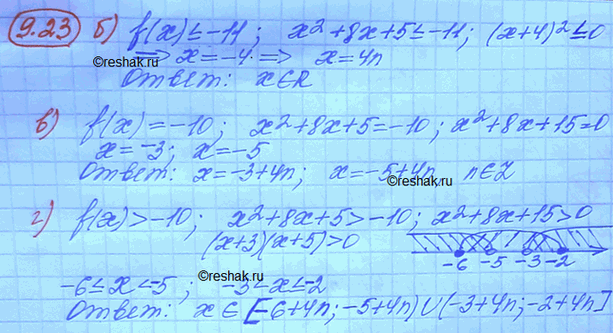 9.23 б) f(x) ≤ -11; x² + 8x + 5 ≤ -11; (x+4)² ≤ 0
⇒ x = -4 ⇒ x = 4n
©reshak.ru
Ответ: x ∈ R
в) f(x) = -10; x² + 8x + 5 = -10; x² + 8x + 15 = 0
x = -3; x = -5
Ответ: x = -3 + 4n; x = -5 + 4n n ∈ Z
©reshak.ru
г) f(x) > -10; x² + 8x + 5 > -10; x² + 8x + 15 > 0
(x+3)(x+5) > 0
-6 -5 -3 -2
-6 ≤ x < -5; -3 < x ≤ -2
©reshak.ru
Ответ: x ∈ [-6+4n; -5+4n) ∪ (-3+4n; -2+4n]